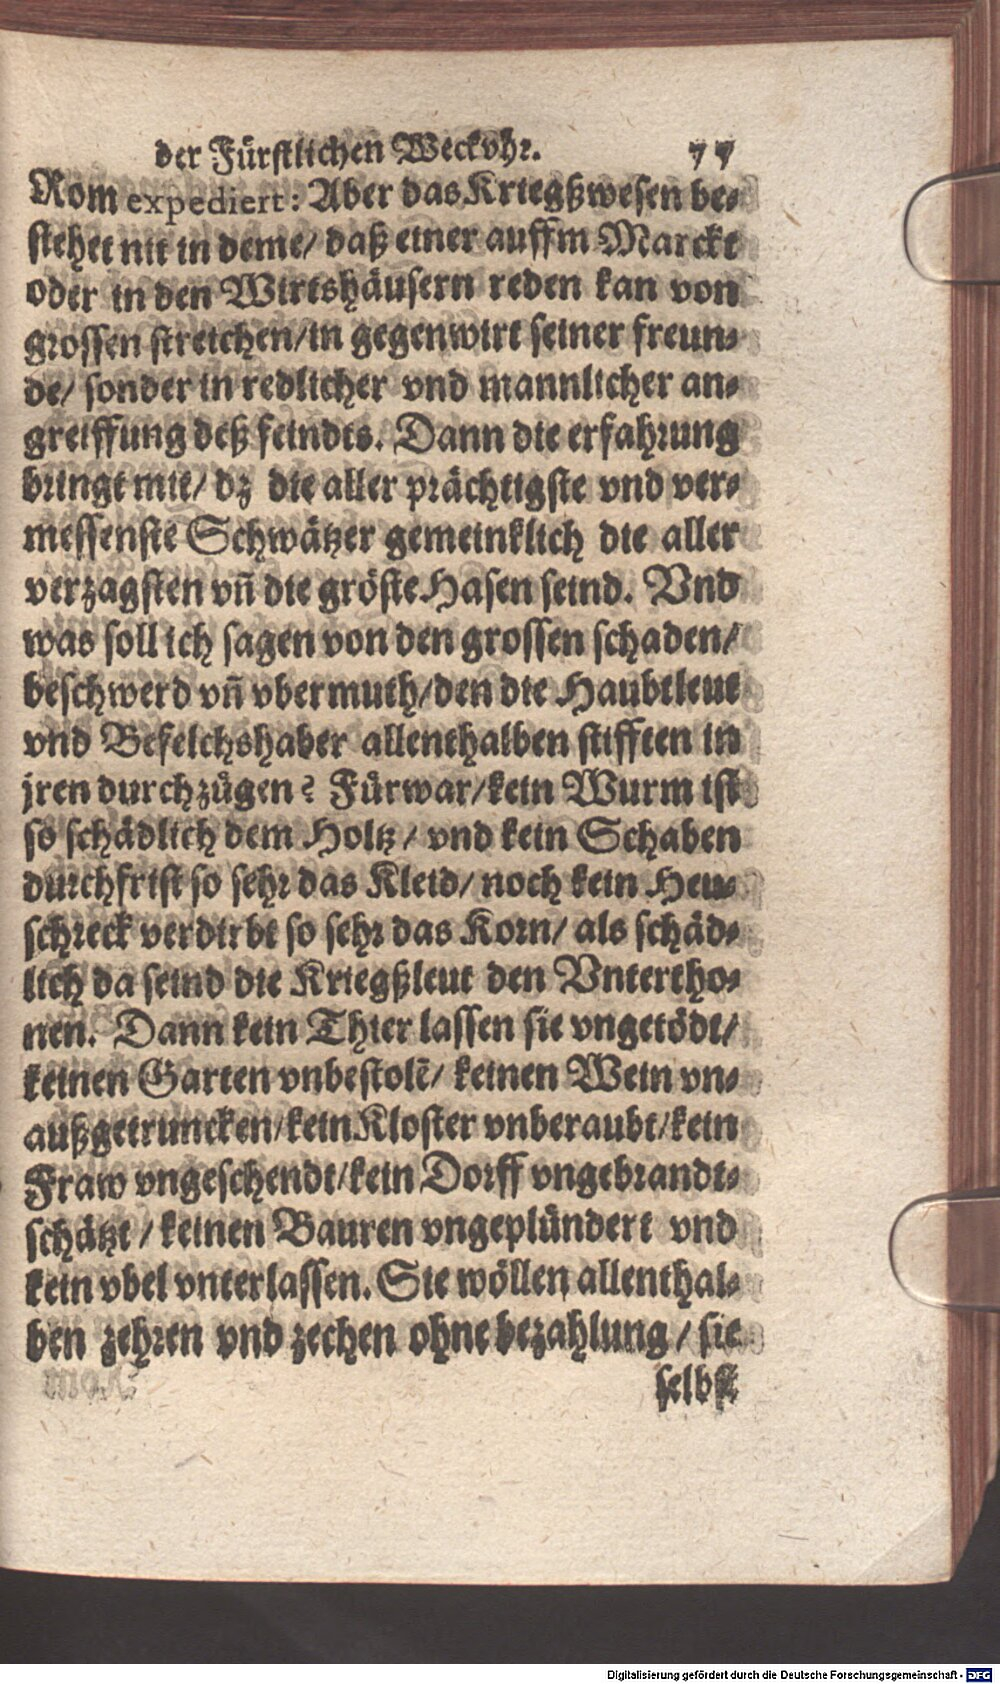 der Fürstlichen Weckvhr. 77
Rom expediert: Aber das Kriegßwesen be-
stehet nit in deme/ daß einer auffm Marckt
oder in den Wirtshäusern reden kan von
grossen streichen/in gegenwirt seiner freun-
de/ sonder in redlicher vnd mannlicher an-
greiffung deß feindts. Dann die erfahrung
bringt mit/ dz die aller prächtigste vnd ver-
messenste Schwätzer gemeinklich die aller
verzagsten vñ die gröste Hasen seind. Vnd
was soll ich sagen von den grossen schaden/
beschwerd vñ vbermuth/den die Haubtleut
vnd Befelchshaber allenthalben stifften in
jren durchzügen? Fürwar/kein Wurm ist
so schädlich dem Holtz/ vnd kein Schaben
durchfrist so sehr das Kleid/ noch kein Hew-
schreck verdirbt so sehr das Korn/ als schäd-
lich da seind die Kriegßleut den Vntertho-
nen. Dann kein Thier lassen sie vngetödt/
keinen Garten vnbestolẽ/ keinen Wein vn-
außgetruncken/kein Kloster vnberaubt/kein
Fraw vngeschendt/kein Dorff vngebrandt-
schätzt/ keinen Bauren vngeplündert vnd
kein vbel vnterlassen. Sie wöllen allenthal-
ben zehren vnd zechen ohne bezahlung/ sie
selbst
Digitalisierung gefördert durch die Deutsche Forschungsgemeinschaft - DFG